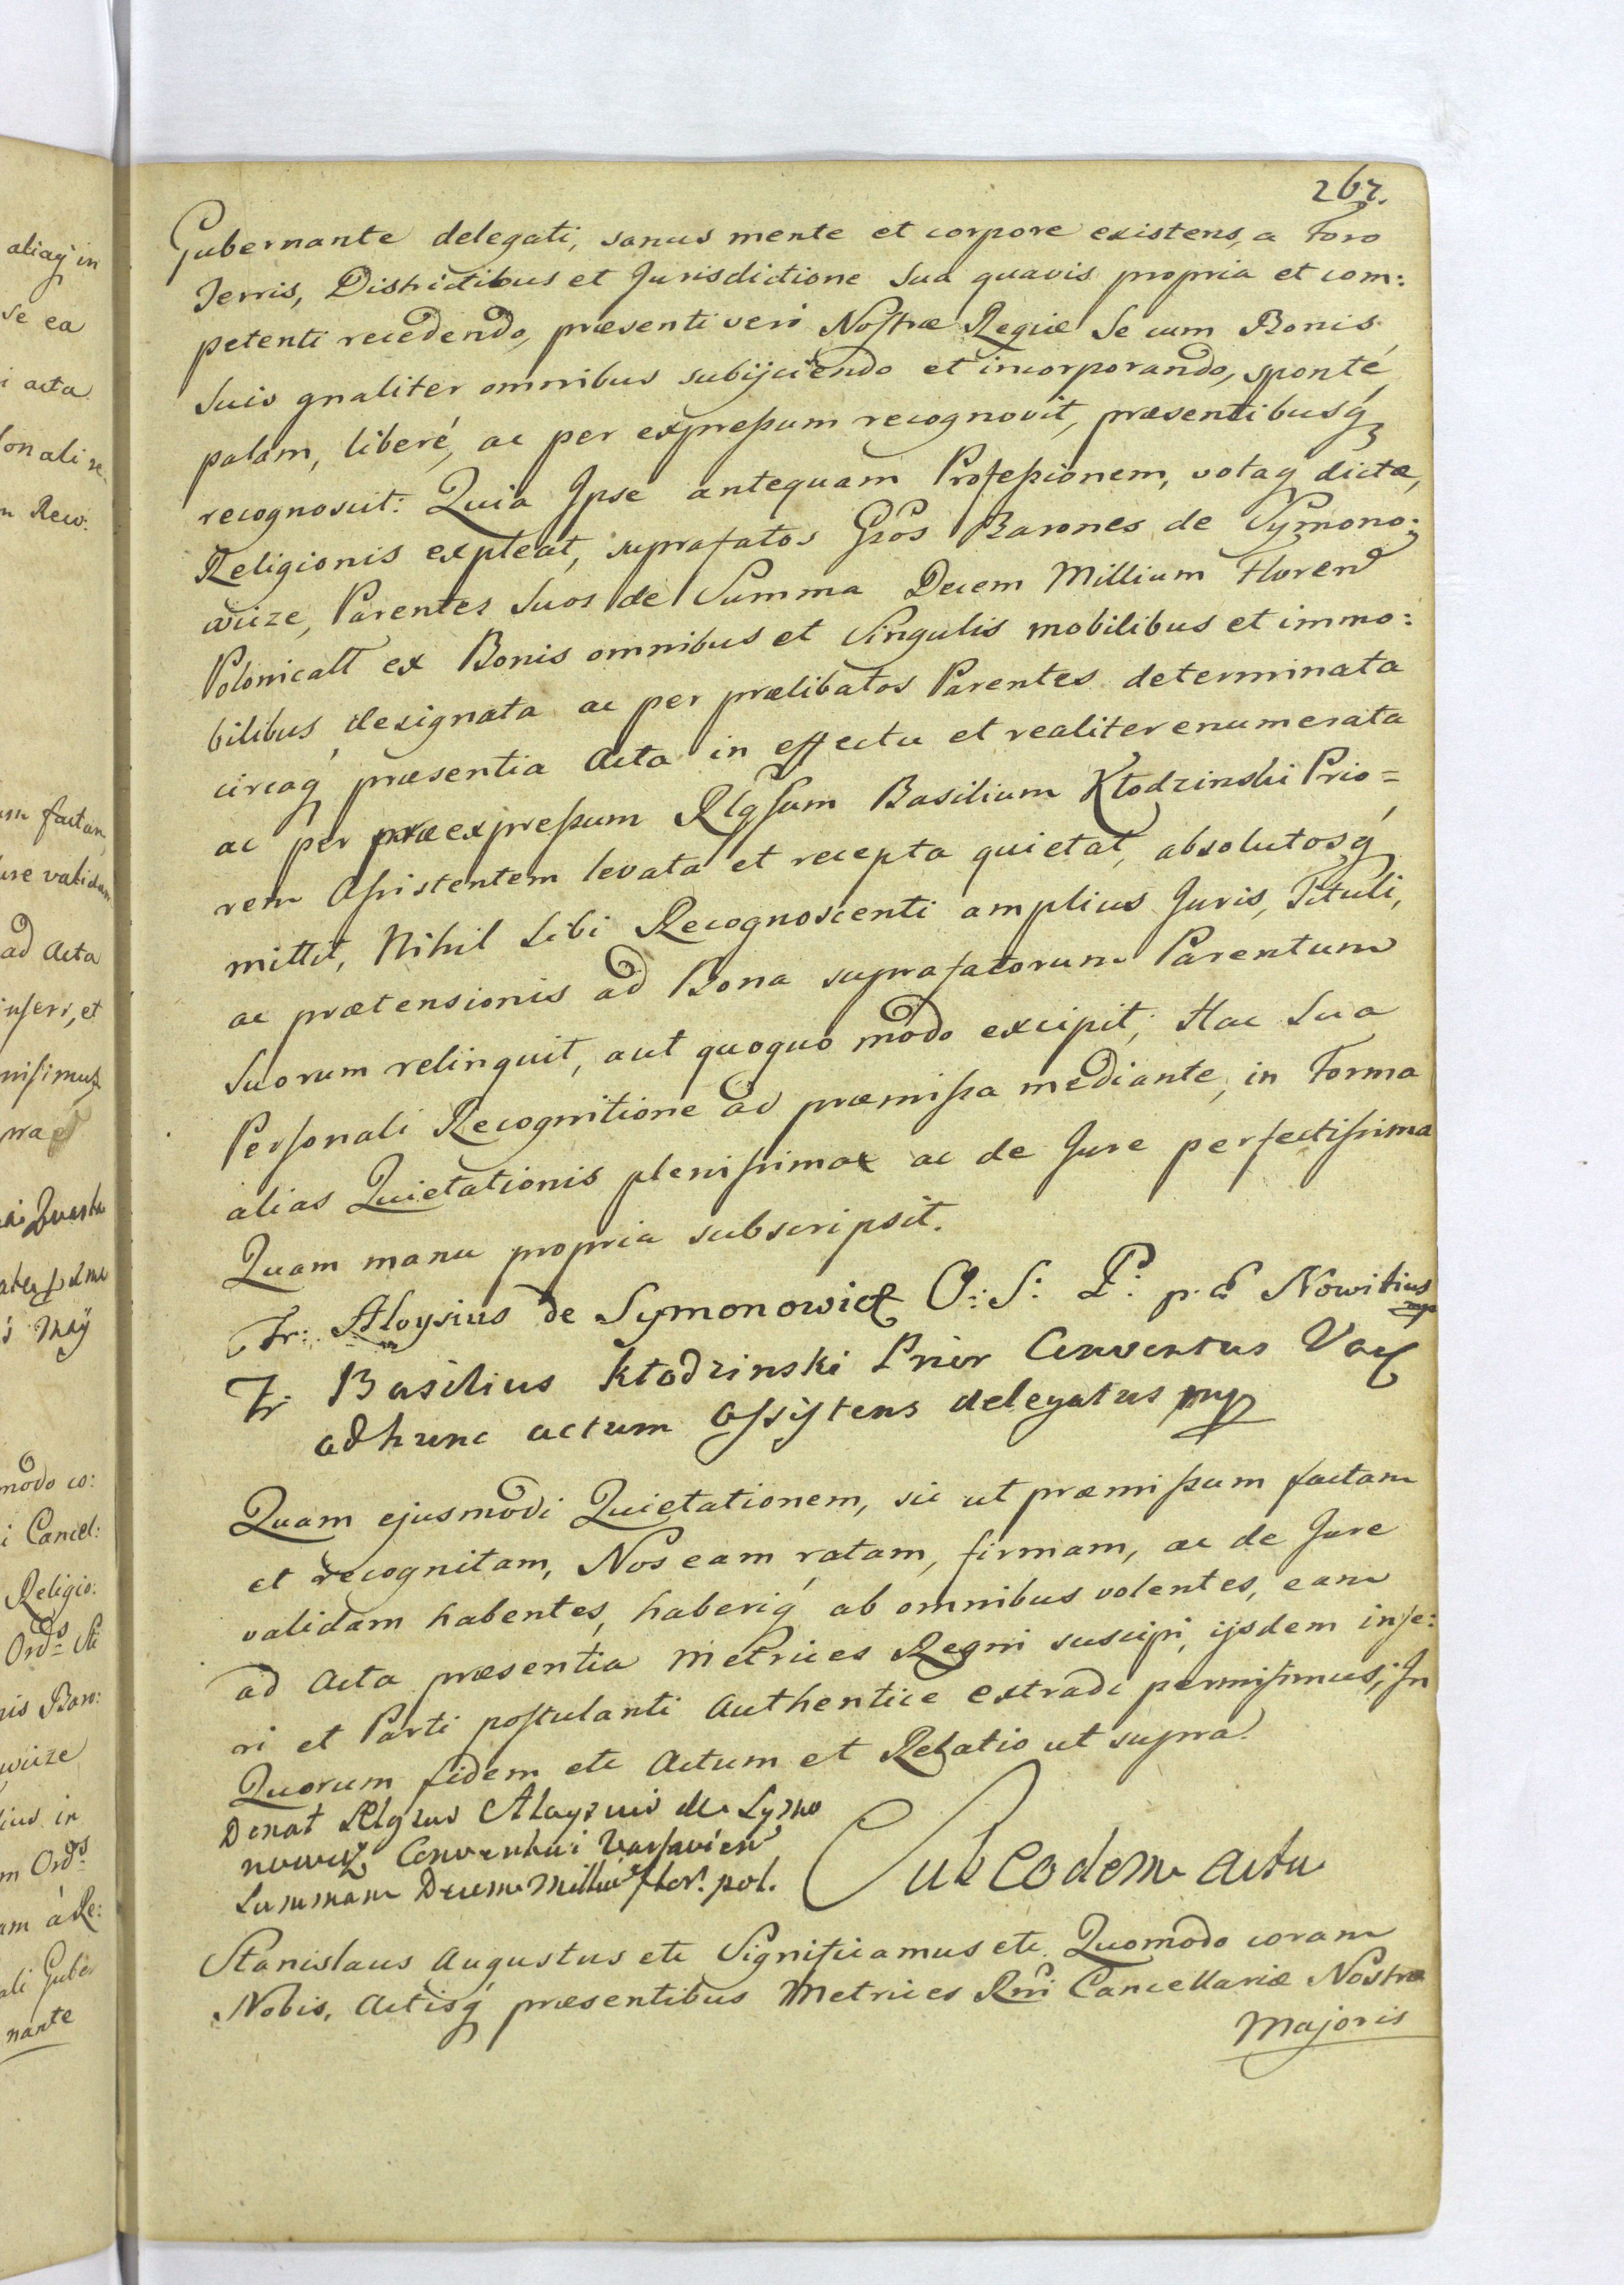 267.
Gubernante delegati, sanus mente et corpore existens, a Foro
Terris, Districtibus et Jurisdictione Sua quavis propria et com:
petenti recedendo, præsenti vero Nostræ Regiæ Se cum Bonis
Suis gnaliter omnibus subijciendo et incorporando, sponté,
palam, liberé, ac per expressum recognovit, præsentibusq́
recognoscit: Quia Ipse antequam Professionem, votaq dictæ,
Religionis expleat, suprafatos Gsos Barones de Symono:
wicze, Parentes Suos de Summa Decem Millium Floren
Polonicall ex Bonis omnibus et Singulis mobilibus et immo:
bilibus designata ac per prælibatos Parentes determinata
circaq́ præsentia Acta in effectu et realiter enumerata
ac per præexpressum Rlgsum Basilium Kłodzinski Prio=
rem Assistentem levata et recepta quietat, absolutosq́
mittit, Nihil Sibi Recognoscenti amplius Juris, Tituli,
ac prætensionis ad Bona suprafatorum Parentum
Suorum relinquit, aut quoquo modo excipit; Hac Sua
Personali Recognitione ad præmissa mediante, in Forma
alias Quietationis plenissimæ ac de Jure perfectissima
Quam manu propria subscripsit.
Fr: Aloysius de Symonowicz O: S: P: p. E Nowitius
mp
Fr Basilius Kłodzinski Prior Conventus Var
adhunc actum Assistens delegatus mp
Quam ejusmodi Quietationem, sic ut præmissum factam
et recognitam, Nos eam ratam, firmam, ac de Jure
validam habentes, haberiq́ ab omnibus volentes, eam
ad Acta præsentia Metrices Regni suscipi, ijsdem inse:
ri et Parti postulanti Authentice extradi permisimus; In
Quorum fidem etc Actum et Relatio ut supra.
Donat Rlgsus Aloysius de Symo
nowicz Conventui Varsavien
Summam Decem Milliu Flor: pol.
Sub eodem actu
Stanislaus Augustus etc Significamus etc. Quomodo coram
Nobis, Actisq́ præsentibus Metrices Rni Cancellariæ Nostræ
Majoris